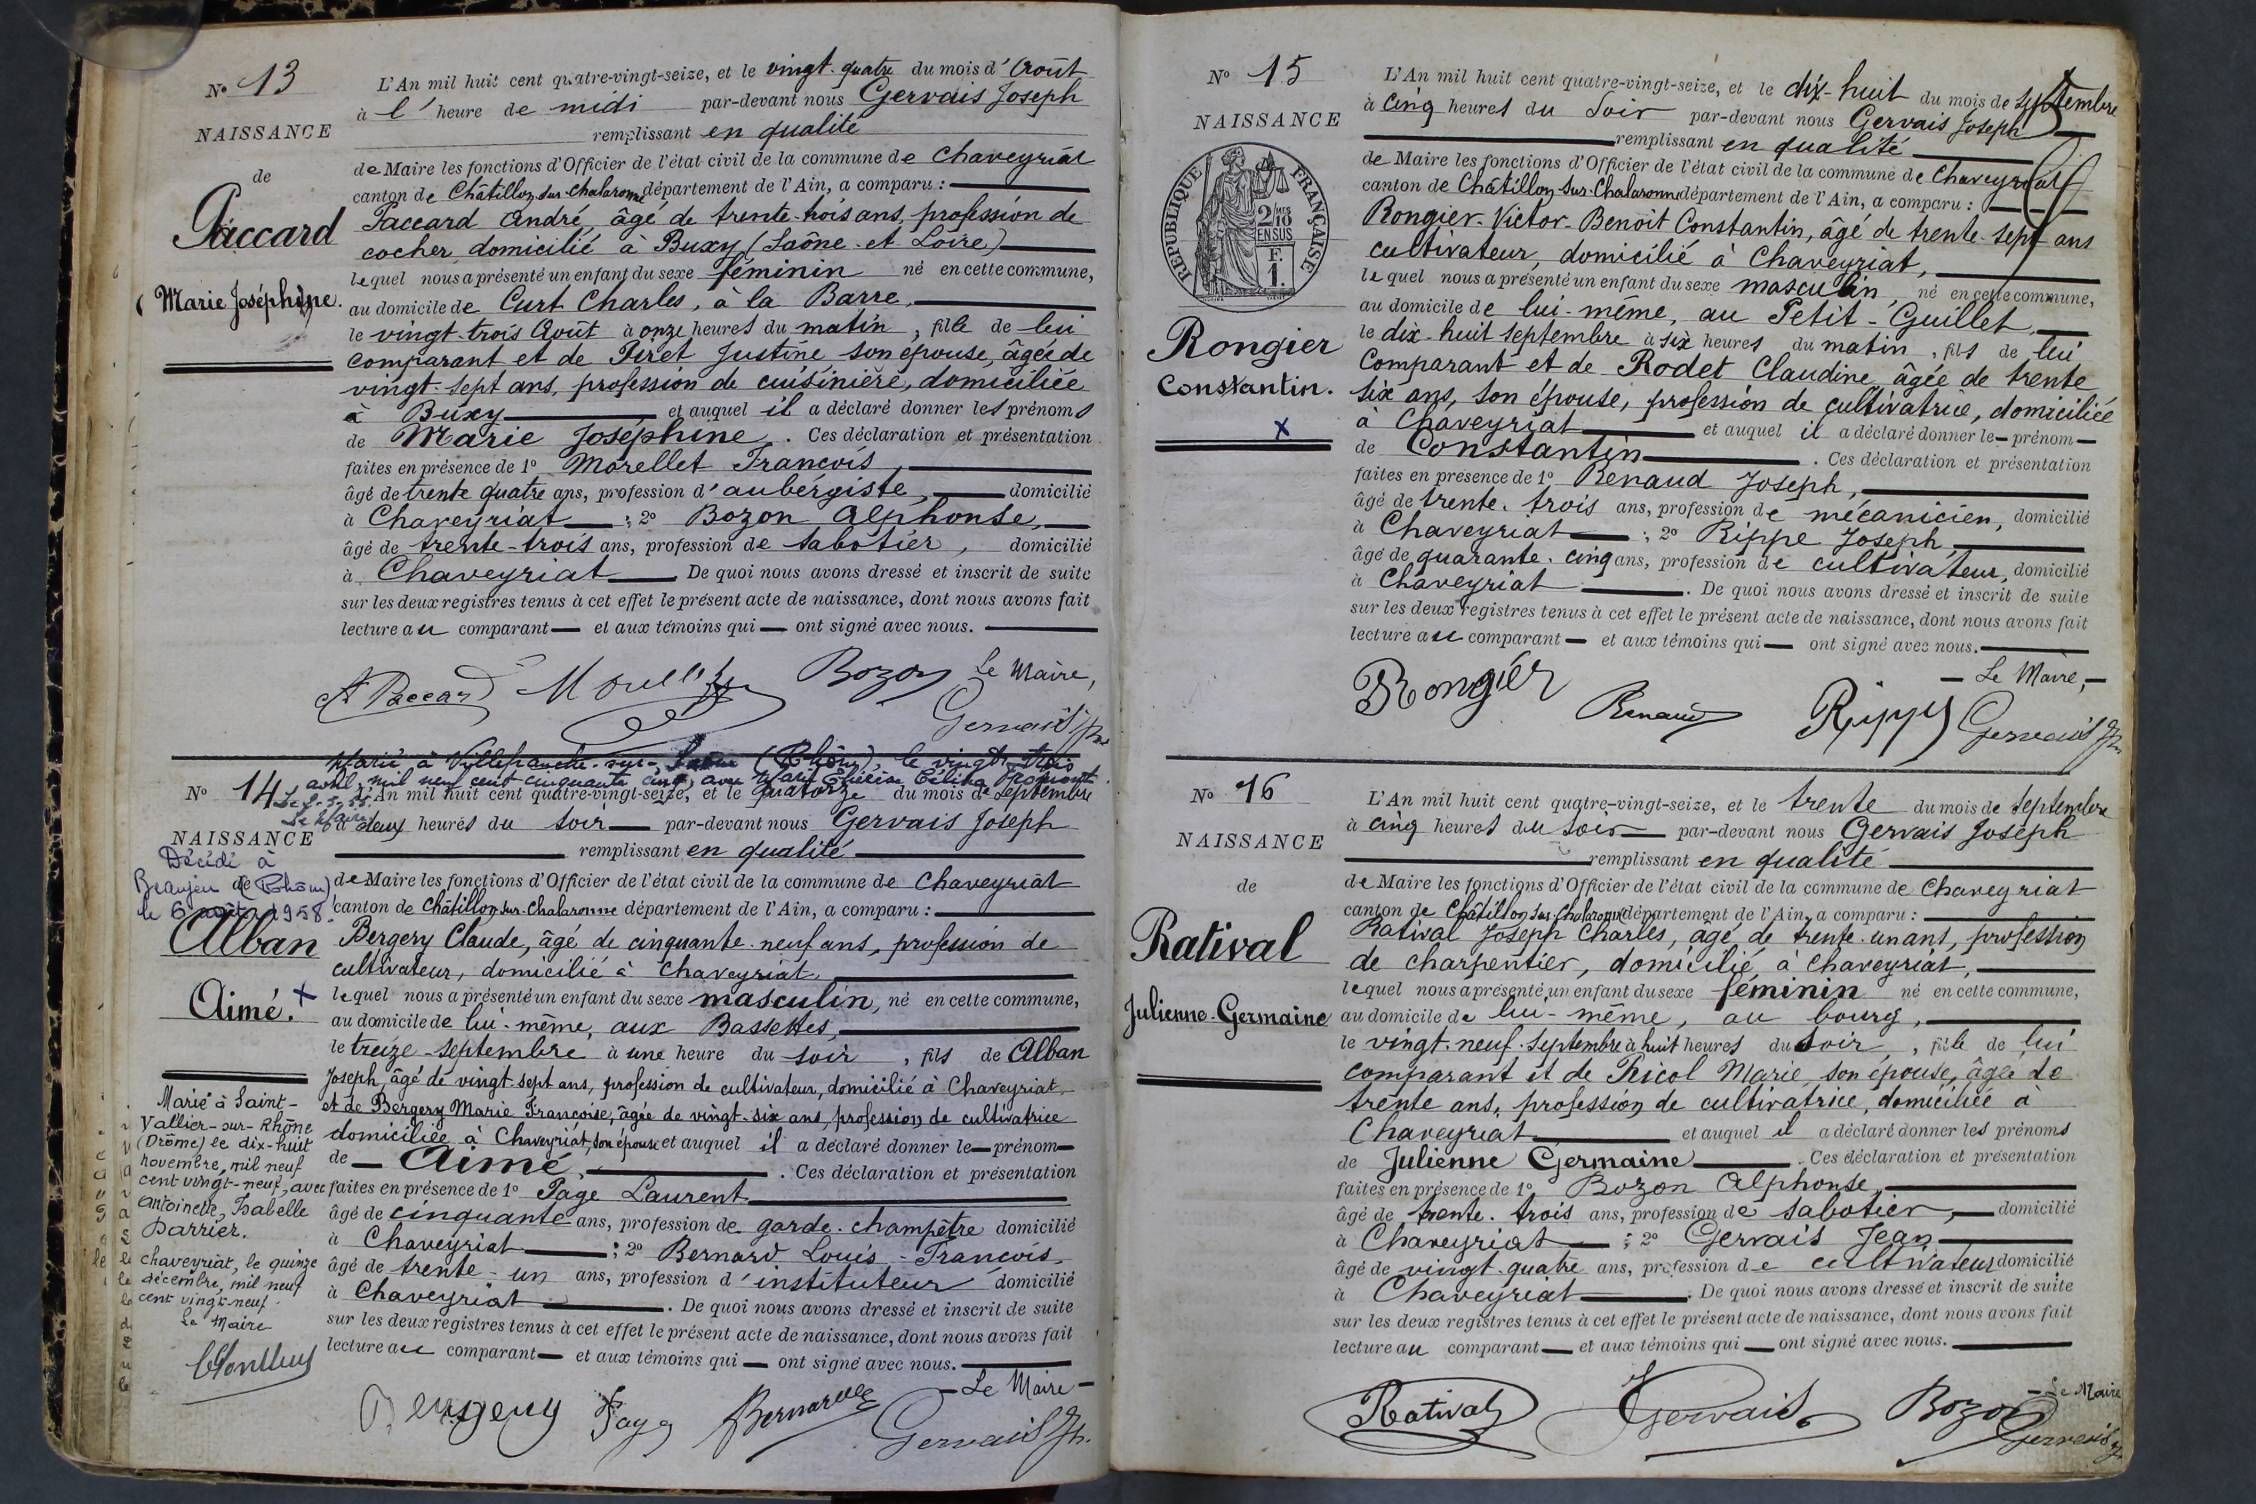 N° 13
NAISSANCE
de
Paccard
Marie Joséphine.
L'An mil huit cent quatre-vingt-seize, et le vingt-quatre du mois d'Août
à l'heure de midi par-devant nous Gervais Joseph
remplissant en qualité
de Maire les fonctions d'Officier de l'état civil de la commune de Chaveyriat
canton de Châtillon sur Chalaronne département de l'Ain, a comparu :
Paccard André, âgé de trente-trois ans, profession de
cocher, domicilié à Buxy (Saône-et-Loire)
lequel nous a présenté un enfant du sexe féminin né en cette commune,
au domicile de Curt Charles, à la Barre,
le vingt-trois Août à onze heures du matin, fille de lui
comparant et de Piret Justine son épouse, âgée de
vingt-sept ans, profession de cuisinière, domiciliée
à Buxy et auquel il a déclaré donner les prénoms
de Marie Joséphine. Ces déclaration et présentation
faites en présence de 1° Morellet François,
âgé de trente quatre ans, profession d'aubergiste, domicilié
à Chaveyriat ; 2° Bozon Alphonse,
âgé de trente-trois ans, profession de sabotier, domicilié
à Chaveyriat De quoi nous avons dressé et inscrit de suite
sur les deux registres tenus à cet effet le présent acte de naissance, dont nous avons fait
lecture au comparant et aux témoins qui ont signé avec nous.
A Paccard Morellet Bozon Le Maire,
Gervais Jph
Marié à Villefranche-sur-Saône (Rhône), le vingt-trois
avril mil neuf cent cinquante cinq avec Marie Thérèse Célina
Le Maire
N° 14
NAISSANCE
de
Décédé à
Beaujeu (Rhône)
le 6 août 1958.
Alban
Aimé.
L'An mil huit cent quatre-vingt-seize, et le quatorze du mois de Septembre
à deux heures du soir par-devant nous Gervais Joseph
remplissant en qualité
de Maire les fonctions d'Officier de l'état civil de la commune de Chaveyriat
canton de Châtillon sur Chalaronne département de l'Ain, a comparu :
Bergery Claude, âgé de cinquante-neuf ans, profession de
cultivateur, domicilié à Chaveyriat,
lequel nous a présenté un enfant du sexe masculin, né en cette commune,
au domicile de lui-même, aux Bassettes,
le treize septembre à une heure du soir, fils de Alban
Joseph, âgé de vingt-sept ans, profession de cultivateur, domicilié à Chaveyriat
et de Bergery Marie Françoise, âgée de vingt-six ans, profession de cultivatrice
domiciliée à Chaveyriat, son épouse et auquel il a déclaré donner le prénom
de Aimé. Ces déclaration et présentation
faites en présence de 1° Page Laurent
âgé de cinquante ans, profession de garde-champêtre domicilié
à Chaveyriat ; 2° Bernard Louis-François,
âgé de trente-un ans, profession d'instituteur domicilié
à Chaveyriat . De quoi nous avons dressé et inscrit de suite
sur les deux registres tenus à cet effet le présent acte de naissance, dont nous avons fait
lecture au comparant et aux témoins qui ont signé avec nous.
Le Maire
Bergery Page Bernard Gervais Jph.
Marié à Saint-
Vallier-sur-Rhône
(Drôme) le dix-huit
novembre, mil neuf
cent vingt-neuf, avec
Antoinette, Isabelle
Darrier.
Chaveyriat, le quinze
décembre, mil neuf
cent vingt-neuf.
Le Maire
N° 15
NAISSANCE
REPUBLIQUE FRANÇAISE
2/10MES
EN SUS
F.
1.
Rongier
Constantin.
L'An mil huit cent quatre-vingt-seize, et le dix-huit du mois de septembre
à cinq heures du soir par-devant nous Gervais Joseph
remplissant en qualité
de Maire les fonctions d'Officier de l'état civil de la commune de Chaveyriat
canton de Châtillon-sur-Chalaronne département de l'Ain, a comparu :
Rongier-Victor-Benoît Constantin, âgé de trente-sept ans
cultivateur, domicilié à Chaveyriat,
lequel nous a présenté un enfant du sexe masculin, né en cette commune,
au domicile de lui-même, au Petit-Guillet,
le dix-huit septembre à six heures du matin, fils de lui
comparant et de Rodet Claudine, âgée de trente
six ans, son épouse, profession de cultivatrice, domiciliée
à Chaveyriat et auquel il a déclaré donner le prénom
de Constantin . Ces déclaration et présentation
faites en présence de 1° Renaud Joseph,
âgé de trente-trois ans, profession de mécanicien, domicilié
à Chaveyriat ; 2° Rippe Joseph,
âgé de quarante-cinq ans, profession de cultivateur, domicilié
à Chaveyriat . De quoi nous avons dressé et inscrit de suite
sur les deux registres tenus à cet effet le présent acte de naissance, dont nous avons fait
lecture au comparant et aux témoins qui ont signé avec nous.
Le Maire,
Rongier Renaud Rippe Gervais Jph
N° 16
NAISSANCE
de
Ratival
Julienne-Germaine
L'An mil huit cent quatre-vingt-seize, et le trente du mois de septembre
à cinq heures du soir par-devant nous Gervais Joseph
remplissant en qualité
de Maire les fonctions d'Officier de l'état civil de la commune de Chaveyriat
canton de Châtillon sur Chalaronne département de l'Ain, a comparu :
Ratival Joseph Charles, âgé de trente-un ans, profession
de charpentier, domicilié à Chaveyriat,
lequel nous a présenté un enfant du sexe féminin né en cette commune,
au domicile de lui-même, au bourg,
le vingt-neuf septembre à huit heures du soir, fille de lui
comparant et de Ricol Marie, son épouse, âgée de
trente ans, profession de cultivatrice, domiciliée à
Chaveyriat et auquel il a déclaré donner les prénoms
de Julienne Germaine . Ces déclaration et présentation
faites en présence de 1° Bozon Alphonse,
âgé de trente-trois ans, profession de sabotier, domicilié
à Chaveyriat ; 2° Gervais Jean
âgé de vingt-quatre ans, profession de cultivateur domicilié
à Chaveyriat . De quoi nous avons dressé et inscrit de suite
sur les deux registres tenus à cet effet le présent acte de naissance, dont nous avons fait
lecture au comparant et aux témoins qui ont signé avec nous.
Le Maire
Ratival Gervais Bozon Gervais